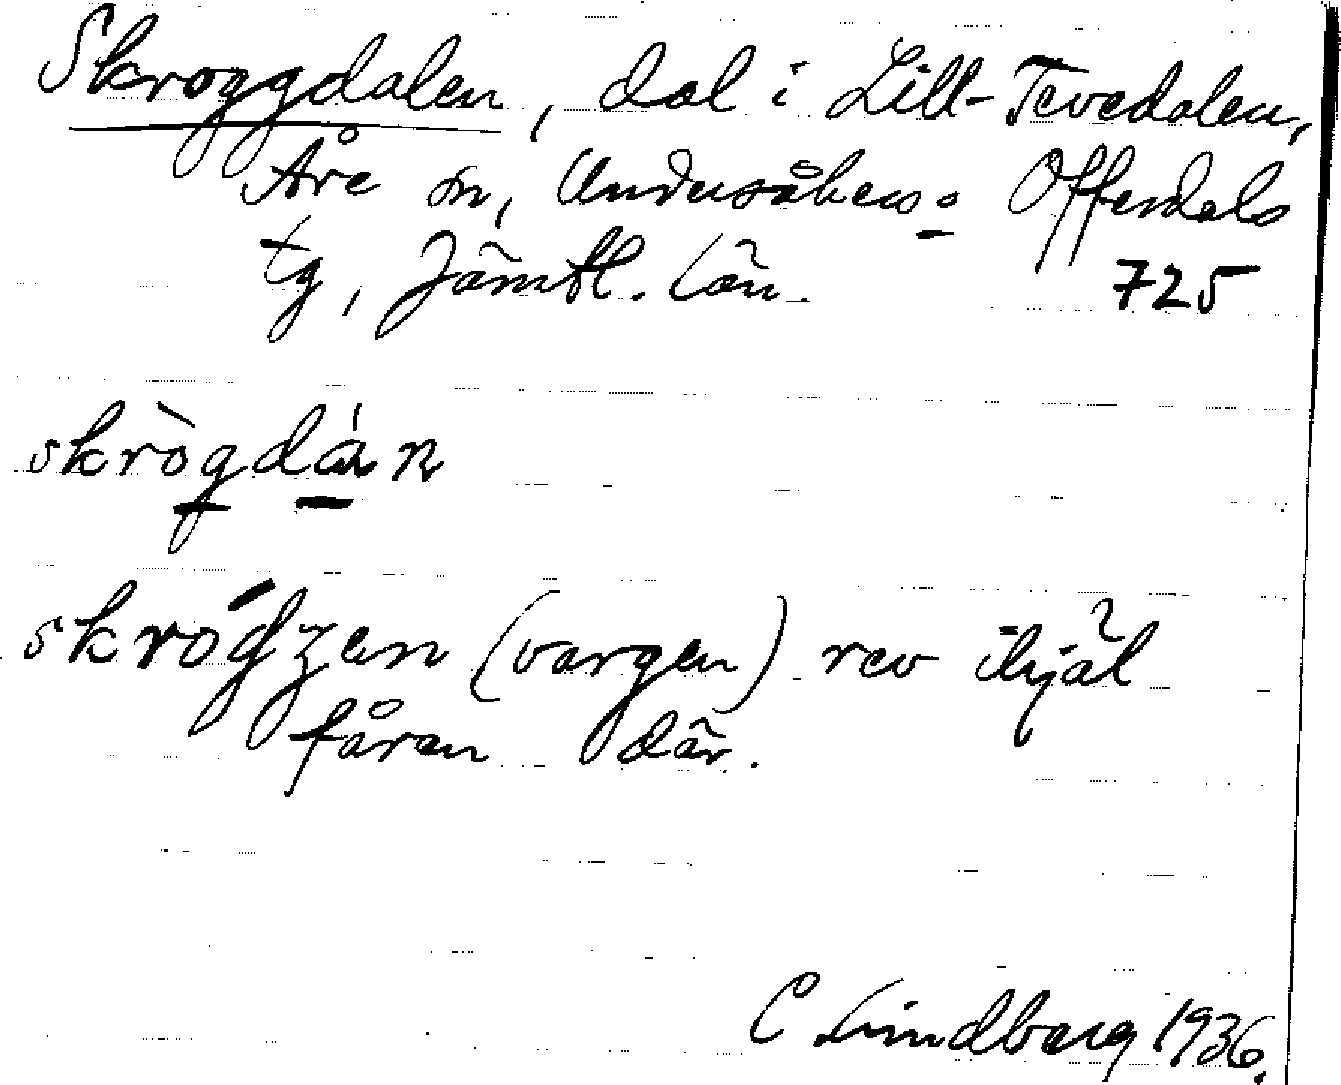 Skroggdalen, dal i Lill-Tevedalen,
Åre sn, Undersåkers o Offerdals
tg, Jämtl. län. 725
skrògdán
skrógzen (vargen) rev ihjäl
fåren där.
C Lindberg 1936.